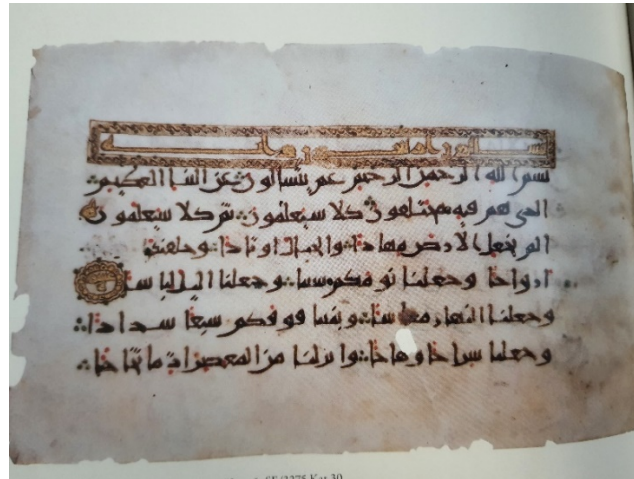 بسم الله الرحمن الرحيم عم يتسالون عن النبا العظيم
الذي هم فيه مختلفون كلا سيعلمون ثم كلا سيعلمون
الم نجعل الارض مهادا والجبال اوتادا وخلقنكم
ازواجا وجعلنا نومكم سباتا وجعلنا اليل لباسا
وجعلنا النهار معاشا وبنينا فوقكم سبعا شدادا
وجعلنا سراجا وهاجا وانزلنا من المعصرات ما ثجاجا